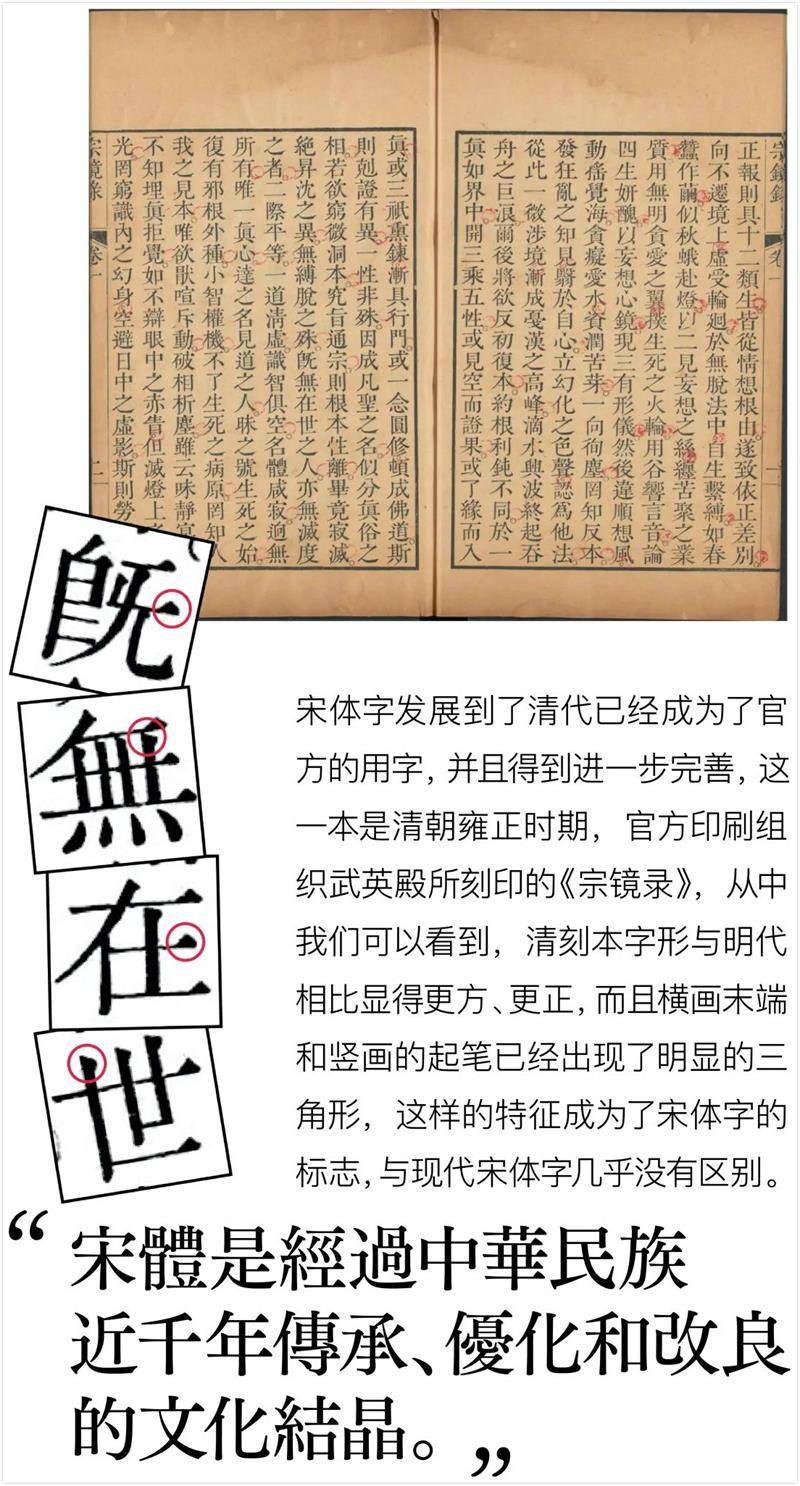 宗鏡錄 卷一
正報則具十二類生皆從情想根由遂致依正差別
向不遷境上虛受輪迴於無脫法中自生繫縛如春
蠶作繭似秋蛾赴燈以二見妄想之絲纏苦聚之業
質用無明貪愛之翼撲生死之火輪用谷響言音論
四生妍醜以妄想心鏡現三有形儀然後違順想風
動搖覺海貪癡愛水資潤苦芽一向徇塵罔知反本
發狂亂之知見翳於自心立幻化之色聲認為他法
從此一微涉境漸成戞漢之高峰滴水興波終起吞
舟之巨浪爾後將欲反初復本約根利鈍不同於一
眞如界中開三乘五性或見空而證果或了緣而入
眞或三祇熏鍊漸具行門或一念圓修頓成佛道斯
則剋證有異一性非殊因成凡聖之名似分眞俗之
相若欲窮微洞本究旨通宗則根本性離畢竟寂滅
絕昇沈之異無縛脫之殊旣無在世之人亦無滅度
之者二際平等一道清虛識智俱空名體咸寂迥無
所有唯一眞心達之名見道之人昧之號生死之始
復有邪根外種小智權機不了生死之病原罔知人
我之見本唯欲猒喧斥動破相析塵雖云味靜冥
不知埋眞拒覺如不辯眼中之赤眚但滅燈上
光罔窮識內之幻身空避日中之虛影斯則勞
宗鏡錄 卷一 二
旣
無
在
世
宋体字发展到了清代已经成为了官
方的用字，并且得到进一步完善，这
一本是清朝雍正时期，官方印刷组
织武英殿所刻印的《宗镜录》，从中
我们可以看到，清刻本字形与明代
相比显得更方、更正，而且横画末端
和竖画的起笔已经出现了明显的三
角形，这样的特征成为了宋体字的
标志，与现代宋体字几乎没有区别。
“宋體是經過中華民族
近千年傳承、優化和改良
的文化結晶。”